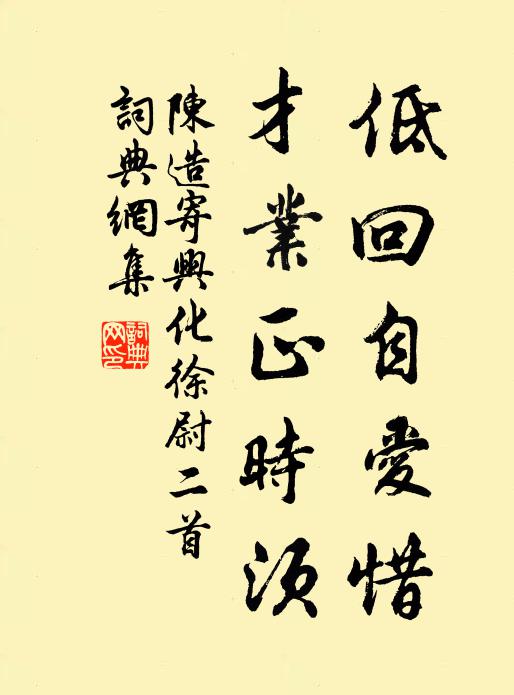 低回自愛惜
才業正時須
陳造寄興化徐尉二首
詞典網集
詞典網印